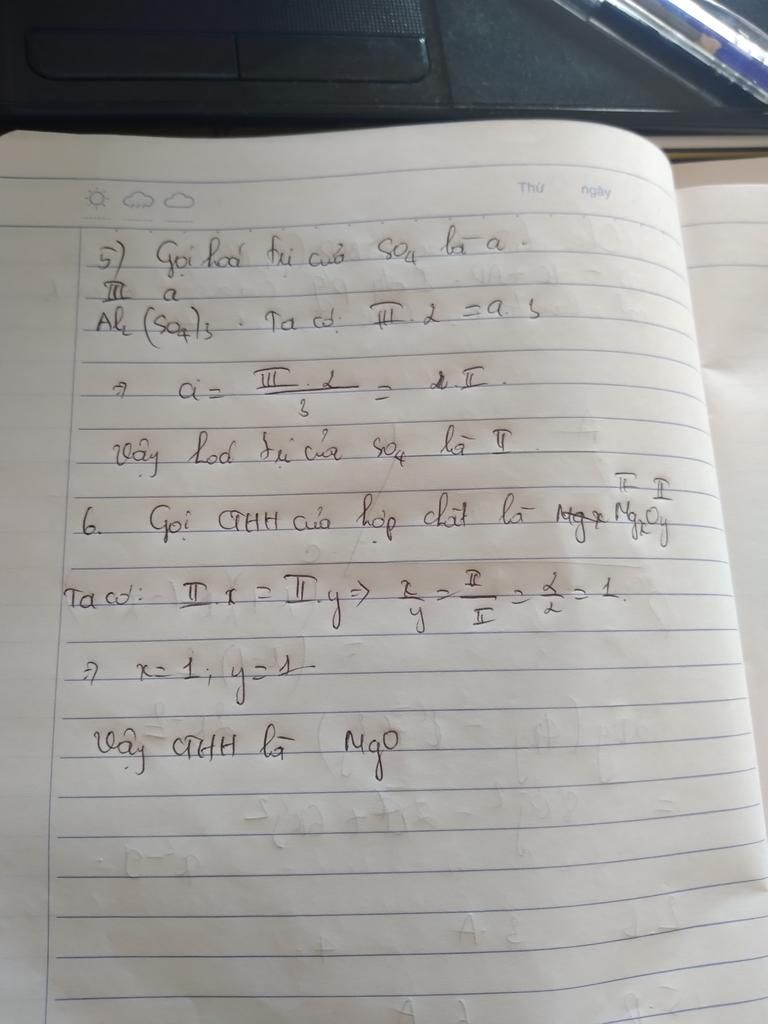 Thứ ngày
5) Gọi hoá trị của SO₄ là a.
III a
Al₂(SO₄)₃. Ta có: III. 2 = a. 3
⇒ a = III. 2 / 3 = II.
Vậy hoá trị của SO₄ là II
II II
6. Gọi CTHH của hợp chất là MgₓOy
Ta có: II. x = II. y ⇒ x/y = II/II = 2/2 = 1.
⇒ x = 1; y = 1
Vậy CTHH là MgO